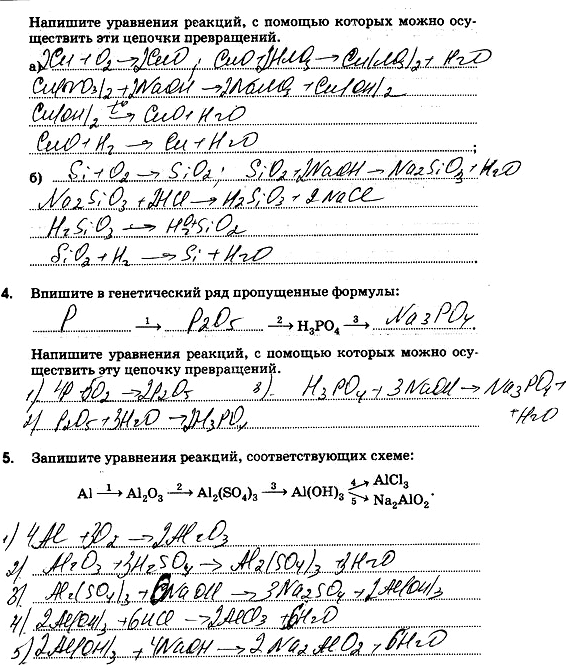 Напишите уравнения реакций, с помощью которых можно осу-
ществить эти цепочки превращений.
а) 2Cu + O2 → 2CuO; CuO + 2HNO3 → Cu(NO3)2 + H2O
Cu(NO3)2 + 2NaOH → 2NaNO3 + Cu(OH)2
Cu(OH)2 t°→ CuO + H2O
CuO + H2 → Cu + H2O ;
б) Si + O2 → SiO2; SiO2 + 2NaOH → Na2SiO3 + H2O
Na2SiO3 + 2HCl → H2SiO3 + 2NaCl
H2SiO3 → H2O + SiO2
SiO2 + H2 → Si + H2O
4. Впишите в генетический ряд пропущенные формулы:
P 1→ P2O5 2→ H3PO4 3→ Na3PO4
Напишите уравнения реакций, с помощью которых можно осу-
ществить эту цепочку превращений.
1) 4P + 5O2 → 2P2O5 3) H3PO4 + 3NaOH → Na3PO4 +
2) P2O5 + 3H2O → 2H3PO4 + H2O
5. Запишите уравнения реакций, соответствующих схеме:
Al 1→ Al2O3 2→ Al2(SO4)3 3→ Al(OH)3 4→ AlCl3
5→ Na2AlO2.
1) 4Al + 3O2 → 2Al2O3
2) Al2O3 + 3H2SO4 → Al2(SO4)3 + 3H2O
3) Al2(SO4)3 + 6NaOH → 3Na2SO4 + 2Al(OH)3
4) 2Al(OH)3 + 6HCl → 2AlCl3 + 6H2O
5) 2Al(OH)3 + 4NaOH → 2Na2AlO2 + 6H2O